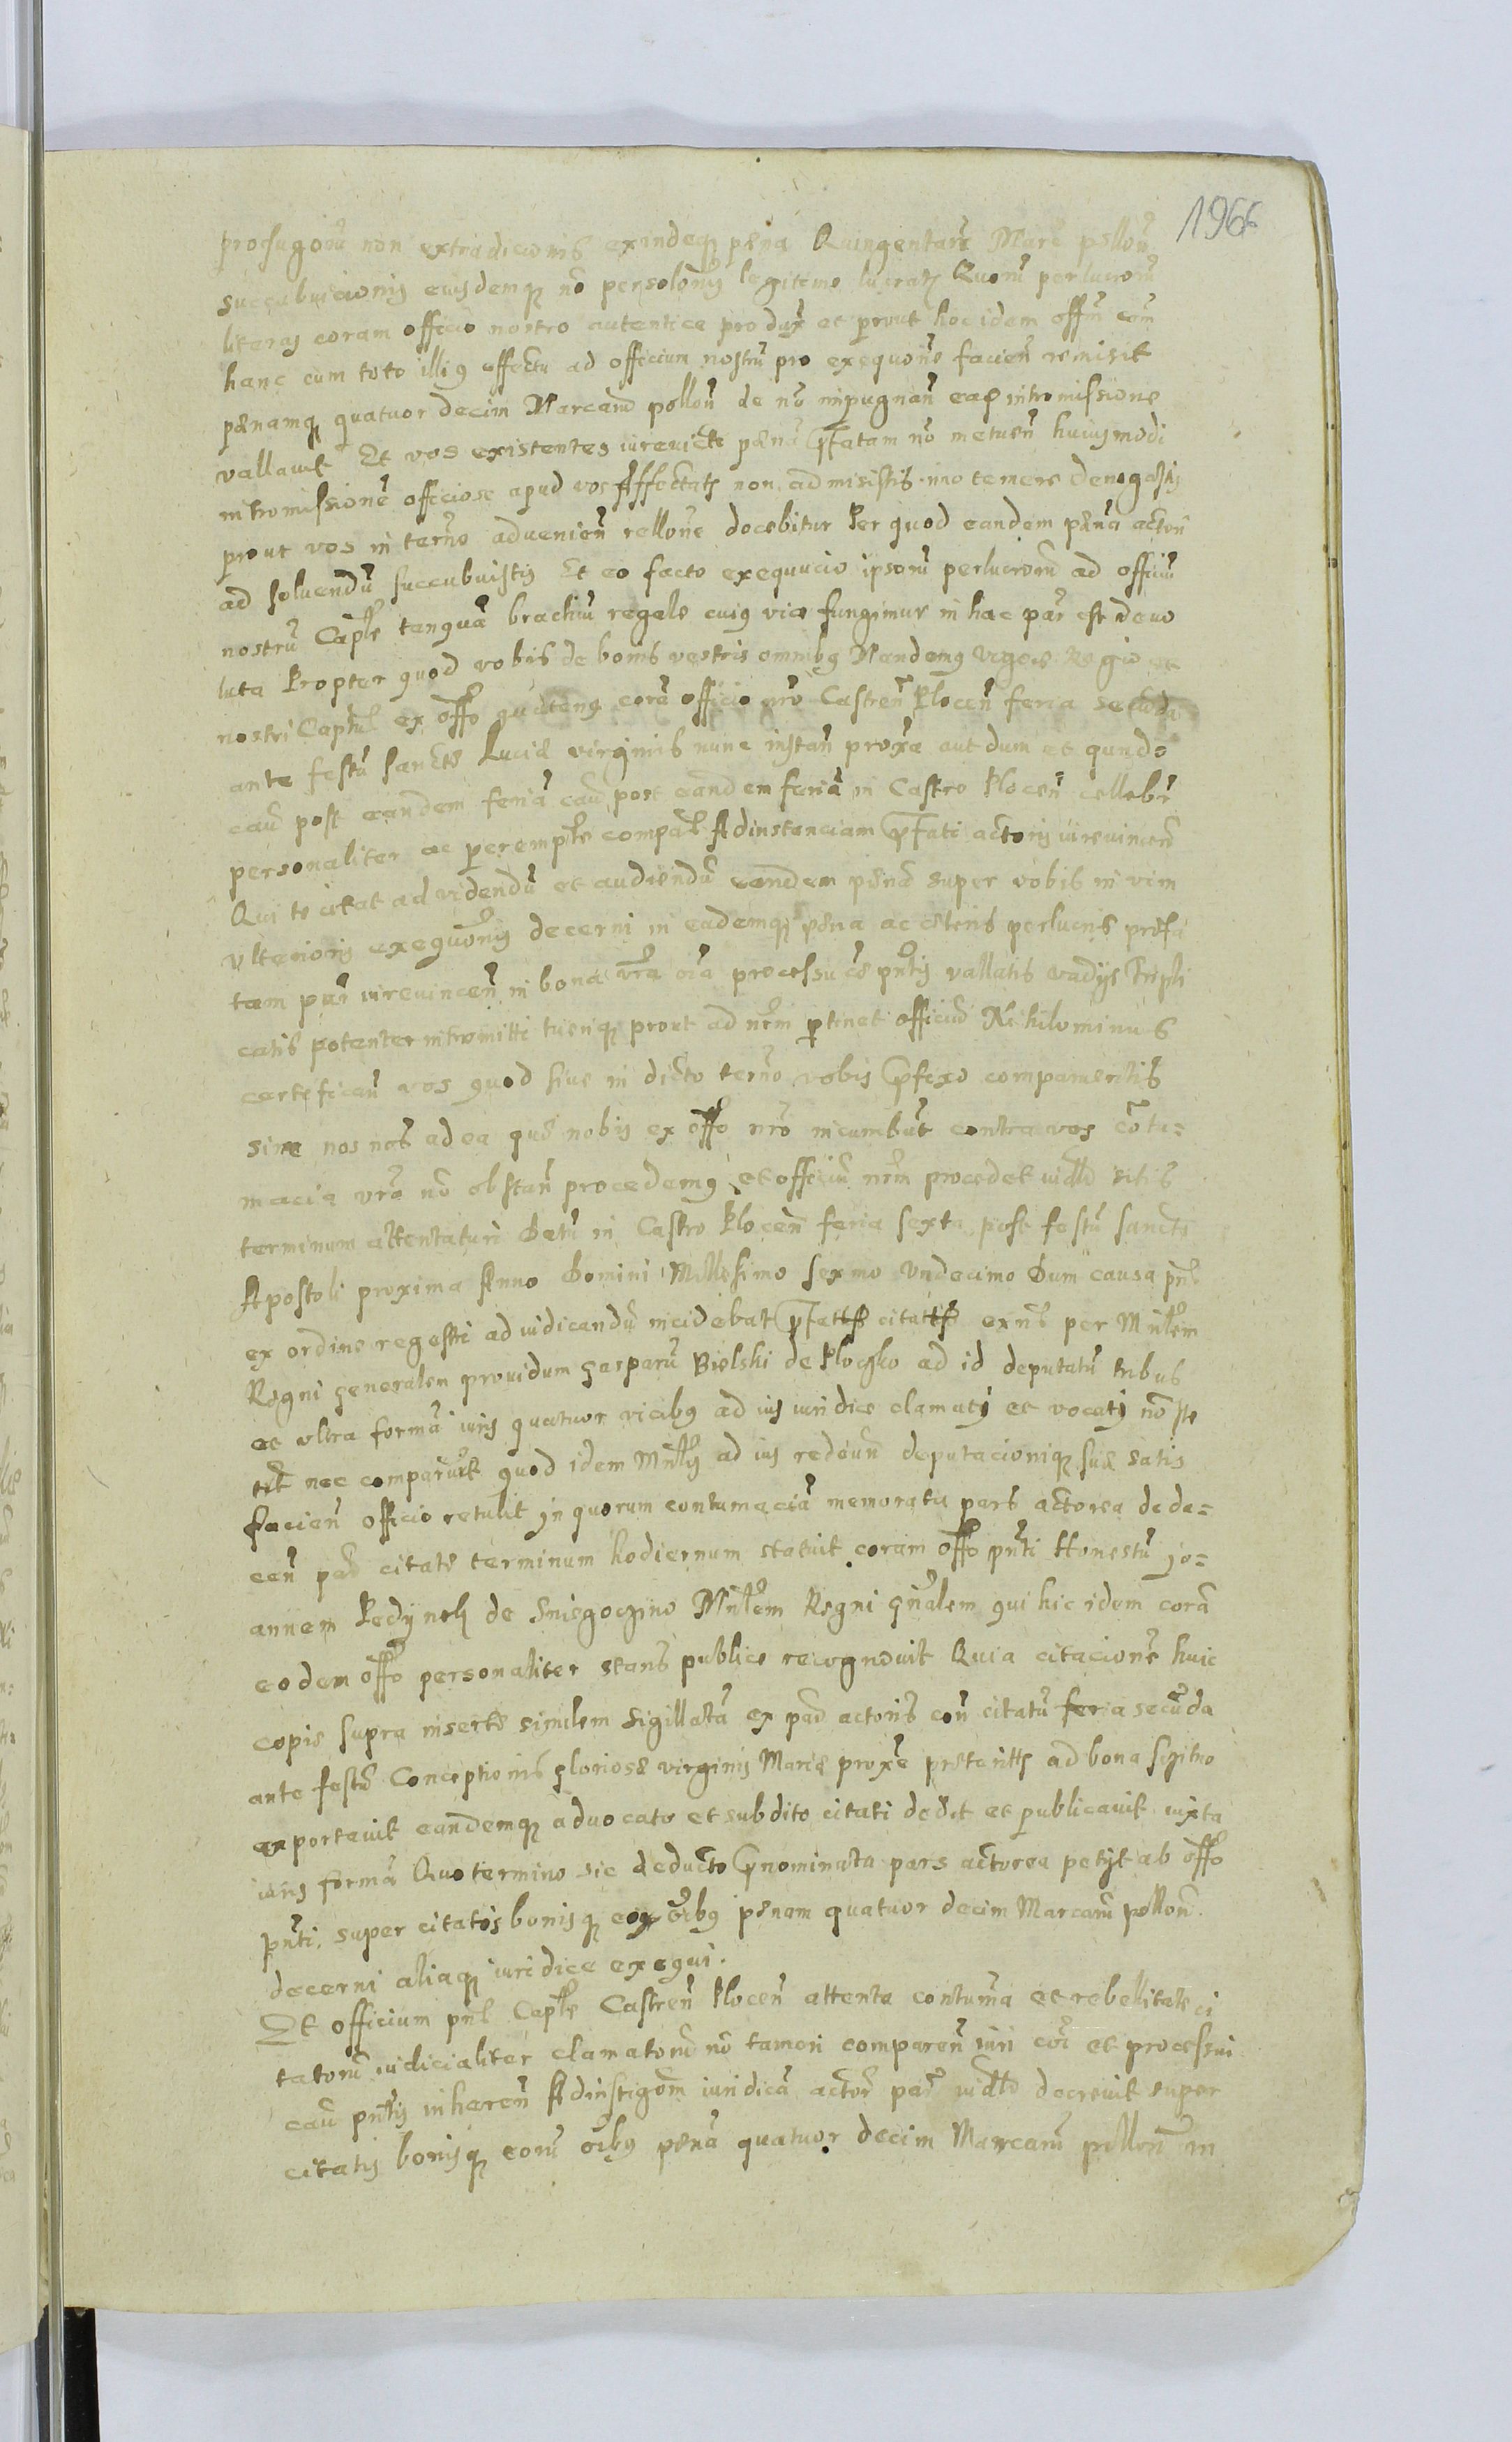 1966
profugorũ non extradicionis exindeq; pæna Quingentarũ Marc̃ pollon̄
succubuicionis eiusdemq; nō persolon̄is legitime lucratæ Quorũ perlucrorũ
literas coram officio nostro autentice produx̃ et prout hoc idem offm̃
hanc cum toto illiꝰ effectu ad officium nostrũ pro exequon̄e facien̄ remisit
pænamq; quatuor decim Marcarũ pollon̄ de nō impugnan̄ eaꝗ intromissione
vallavit Et vos existentes iurevicti pænã p̄fatam nō metuen̄ huiusmodi
intromissionẽ officiose apud vos Affectatæ non admisistis imo temere denegastis
prout vos in terno advenien̄ rellon̄e docebitur Per quod eandem pænã actori
ad soluendũ succubuistis Et eo facto exequucio ipsorũ perlucrorũ ad officiũ
nostrũ Caple tanquã brachiũ regale cuiꝰ vice fungimur in hac par̃ est devo
luta Propter quod vobis de bonis vestris omnibꝰ Mandamꝰ vigore Regio et
nostri Captnl ex offo quatenꝰ corã officio nrō Castren̄ Plocen̄ feria secũda
ante festũ Sanctæ Luciæ virginis nunc instan̄ prox̃a aut dum et qundo
cau̅ post eandem feriã cau̅ post eandem feriã in Castro Plocen̄ cellebr̃
personaliter ac peremptr̃e compar̃ Adinstanciam p̄fati actoris iurevincen̄
Qui te citat ad videndũ et audiendũ eandem pænã super vobis in vim
vlterioris exequon̄is decerni in eademq; pæna ac cæteris perlucris præfa
tam par̃ iurevincen̄ in bona vr̃a oı̃a processu cæ pn̄tis vallatis vadÿs Tripli
catis potenter intromitti tueriq; prout ad nrm̃ pertinet officiũ Nihilominus
certifican̄ vos quod siue in dicto terno vobis p̄fixo comparueritis
sive nos nos ad ea quæ nobis ex offo nrō incumbũt contra vos cōtu=
macia vr̃a nō obstan̄ procedemꝰ et officiũ nrm̃ procedet iudlr sitis
terminum attentaturi Datũ in Castro Plocen̄ feria sexta post festũ sancti
Apostoli proxima Anno Domini Millesimo sexmo Vndecimo Dum causa pn̄s
ex ordine regestri ad iudicandũ incidebat p̄fati citati exn̄s per Mnl̃em
Regni generalem providum Gasparũ Bielski de Ploczko ad id deputatũ tribus
et vltra formã iuris quatuor vicibꝰ ad ius iuridice clamati et vocati nō ste
tẽt nec comparuẽt quod idem Mnl̃is ad ius redeun̄ deputacioniq; suæ satis
facien̄ officio retulit in quorum contumaciã memorata pars actorea de de=
cen̄ par̃ citatæ terminum hodiernum statuit coram offo pn̄ti Honestũ Jo=
annem Pedynek de Sniegoczino Mnl̃em Regni gn̄ralem qui hic idem corã
eodem offo personaliter stans publice recognovit Quia citacionẽ huic
copiæ supra insertæ similem sigillatã ex par̃ actoris con̄ citatũ feria secũda
ante festũ Conceptionis gloriosæ virginis Mariæ prox̃e præteritæ ad bona Szitno
exportavit eandemq; advocato et subdito citati dedit et publicavit iuxta
iuris formã Quo termino sic deducto p̄nominata pars actorea petÿt ab offo
pn̄ti super citatis bonisq; eoꝝ oı̃bꝰ pænam quatuor decim Marcarũ pollon̄.
decerni aliaq; iuridice exequi.
Et officium pn̄s Caple Castren̄ Plocen̄ attenta contum̃a et rebellitate ci
tatorũ iudicialiter clamatorũ nō tamen comparen̄ iuri coı̃ et processui
cau̅ pn̄tis inhæren̄ Adinstigon̄m iuridicã actor̃ par̃ iudlr decrevit super
citatis bonisq; eorũ oı̃bꝰ pænã quatuor decim Marcarũ pollon̄ in